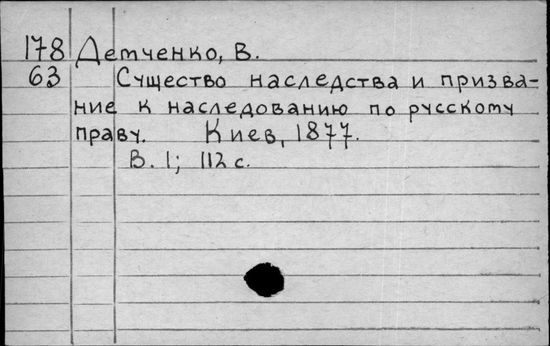 178 Демченко, В.
63 Существо наследства и призва-
ние к наследованию по русскому
праву. Киев, 1877.
В. 1; 112 с.